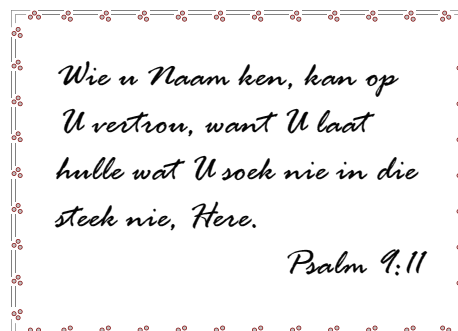 Wie u Naam ken, kan op
U vertrou, want U laat
hulle wat U soek nie in die
steek nie, Here.
Psalm 9:11